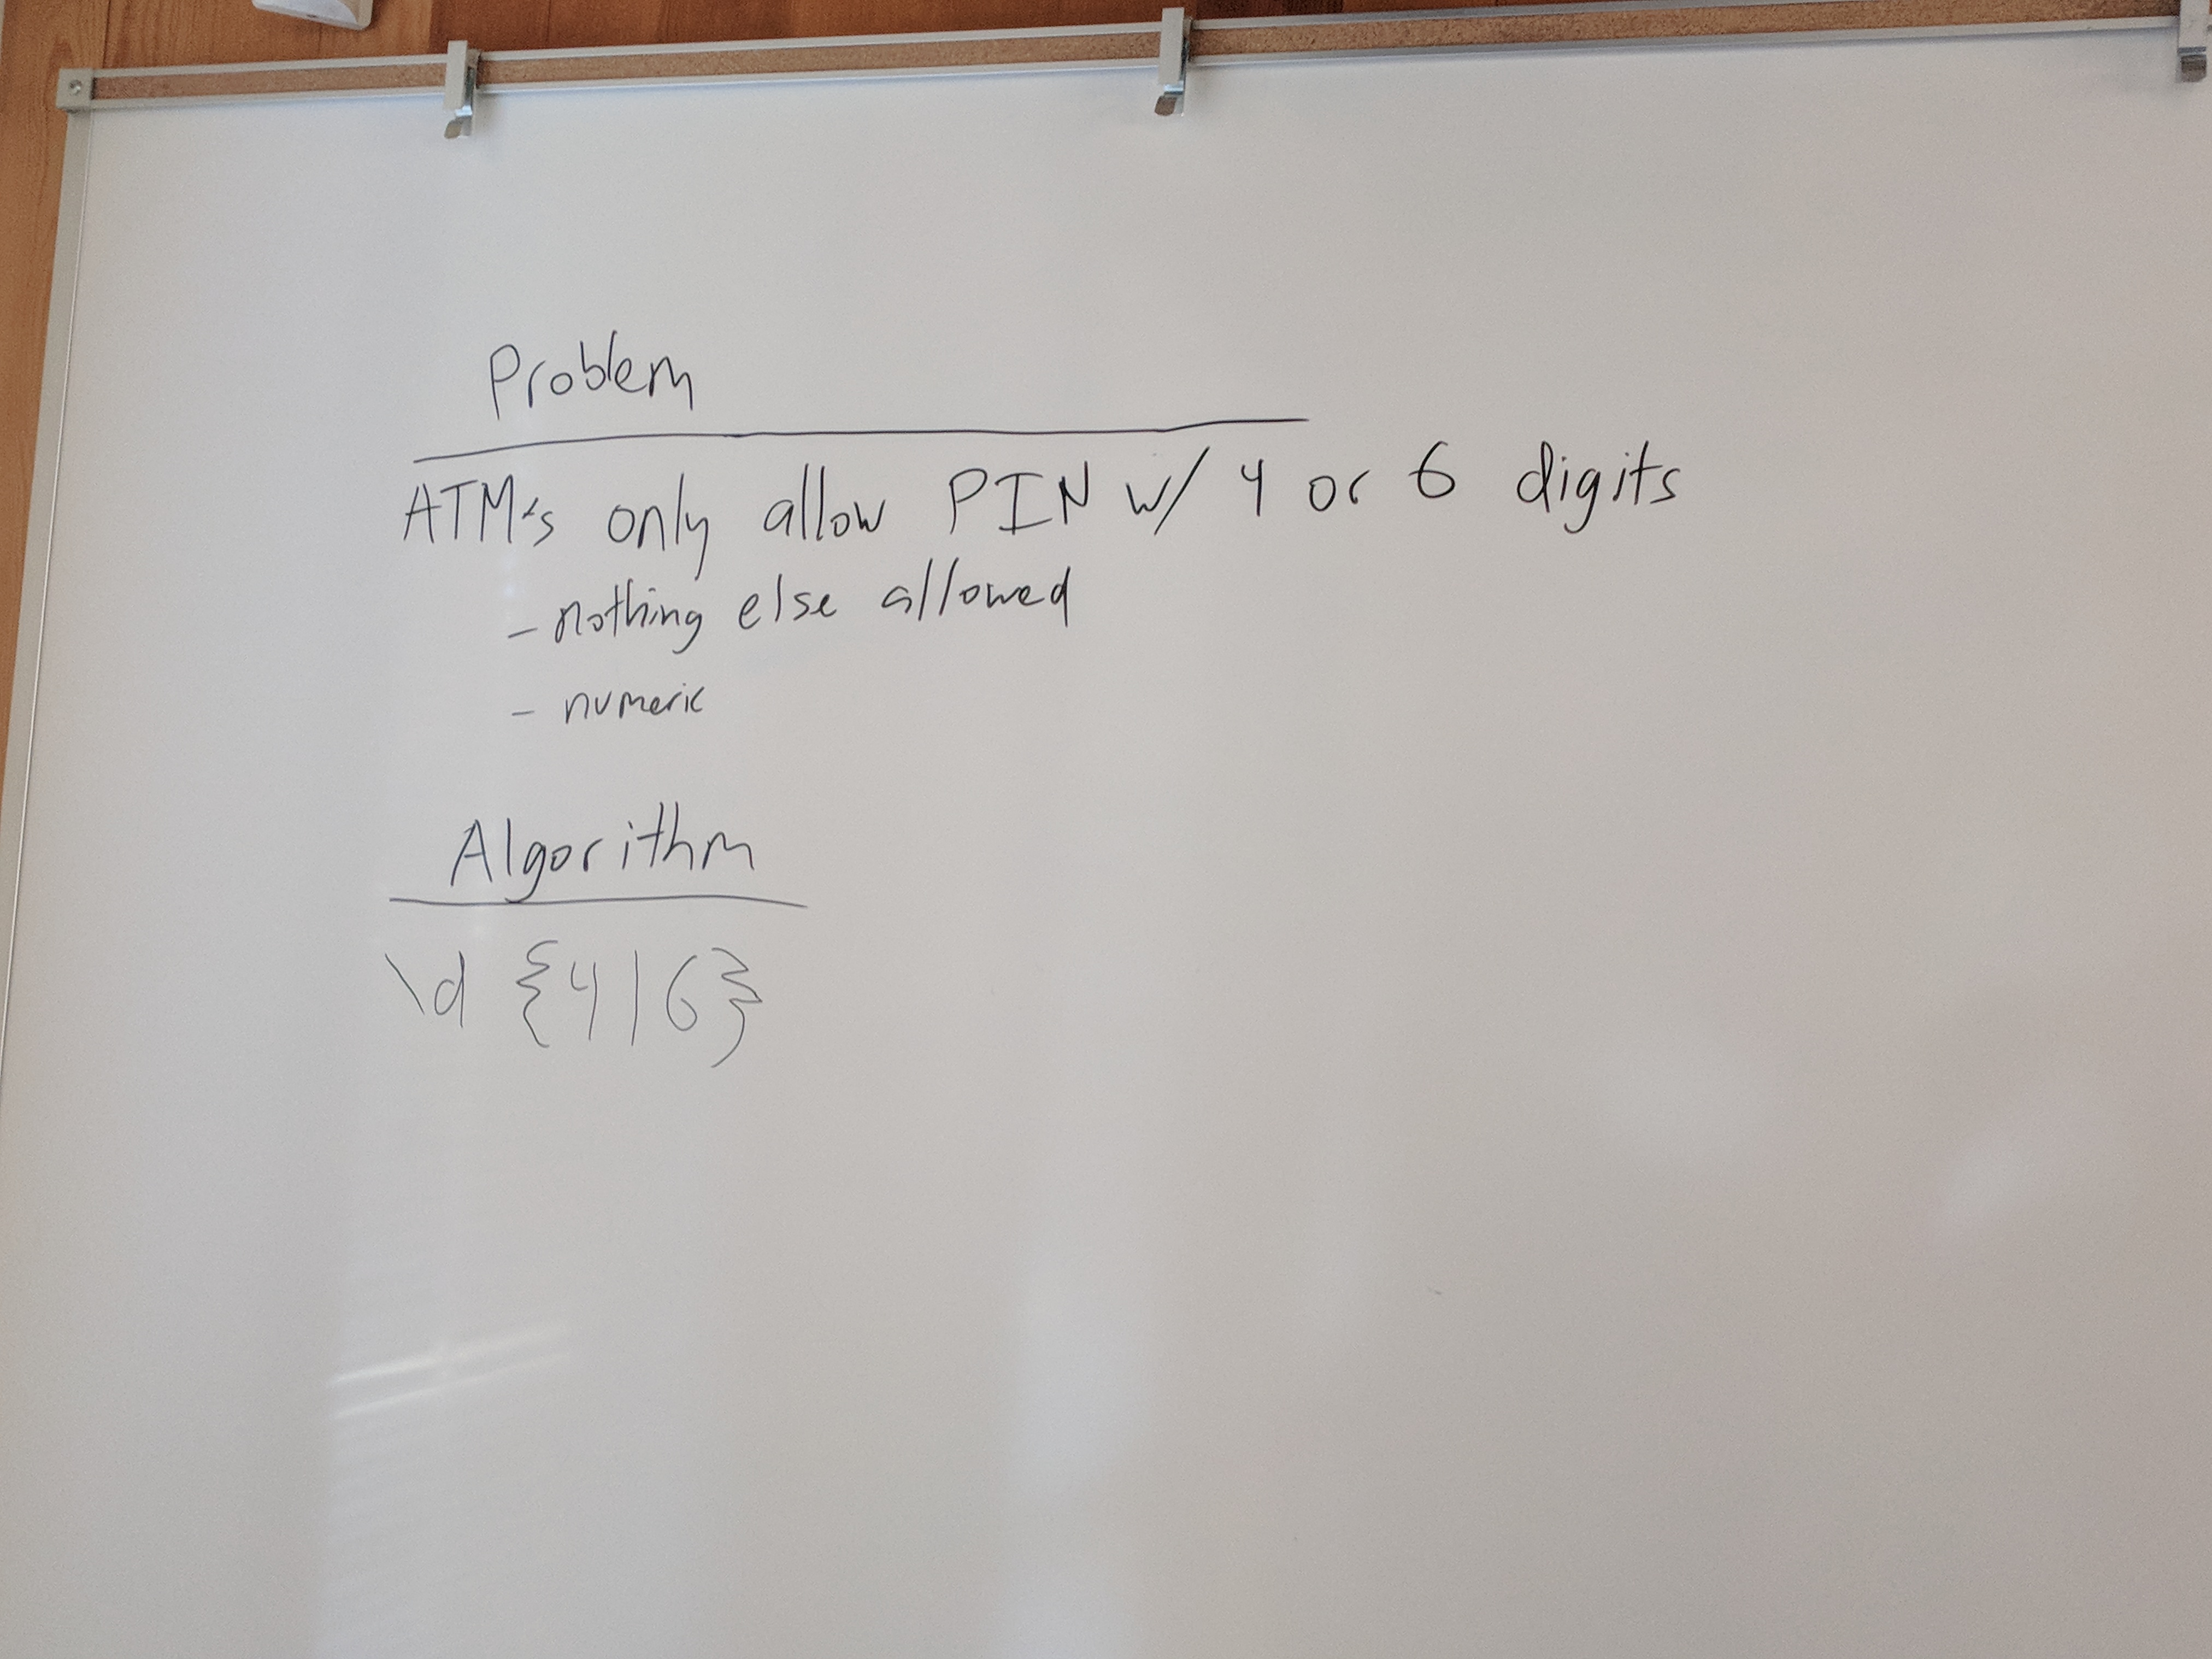 Problem
ATM's only allow PIN w/ 4 or 6 digits
- nothing else allowed
- numeric
Algorithm
\d {4|6}